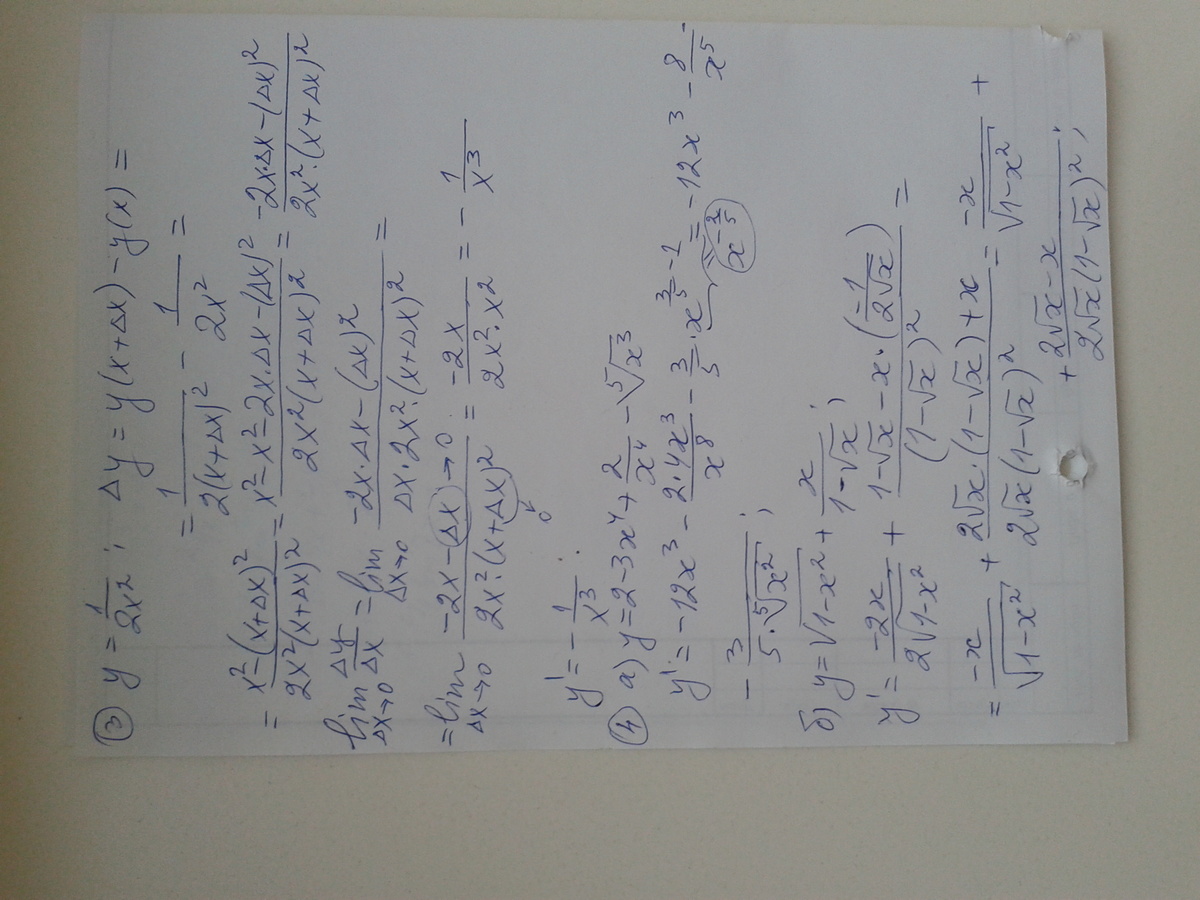 ③ y = 1/(2x²); Δy = y(x+Δx) − y(x) =
= 1/(2(x+Δx)²) − 1/(2x²) =
= (x²−(x+Δx)²)/(2x²(x+Δx)²) = (x²−x²−2x·Δx−(Δx)²)/(2x²(x+Δx)²) = (−2x·Δx−(Δx)²)/(2x²·(x+Δx)²)
lim Δx→0 Δy/Δx = lim Δx→0 (−2x·Δx−(Δx)²)/(Δx·2x²·(x+Δx)²) =
= lim Δx→0 (−2x−(Δx)→0)/(2x²·(x+Δx)²) = −2x/(2x²·x²) = −1/x³
0
y' = −1/x³.
④ а) y = 2−3x⁴+2/x⁴−⁵√x³
y' = −12x³ − 2·4x³/x⁸ − 3/5·x^(3/5−1) = −12x³ − 8/x⁵ −
x^(−2/5)
− 3/(5·⁵√x²);
б) y = √(1−x²) + x/(1−√x);
y' = −2x/(2√(1−x²)) + (1−√x−x·(−1/(2√x)))/(1−√x)² =
= −x/√(1−x²) + (2√x·(1−√x)+x)/(2√x(1−√x)²) = −x/√(1−x²) +
+ (2√x−x)/(2√x(1−√x)²);